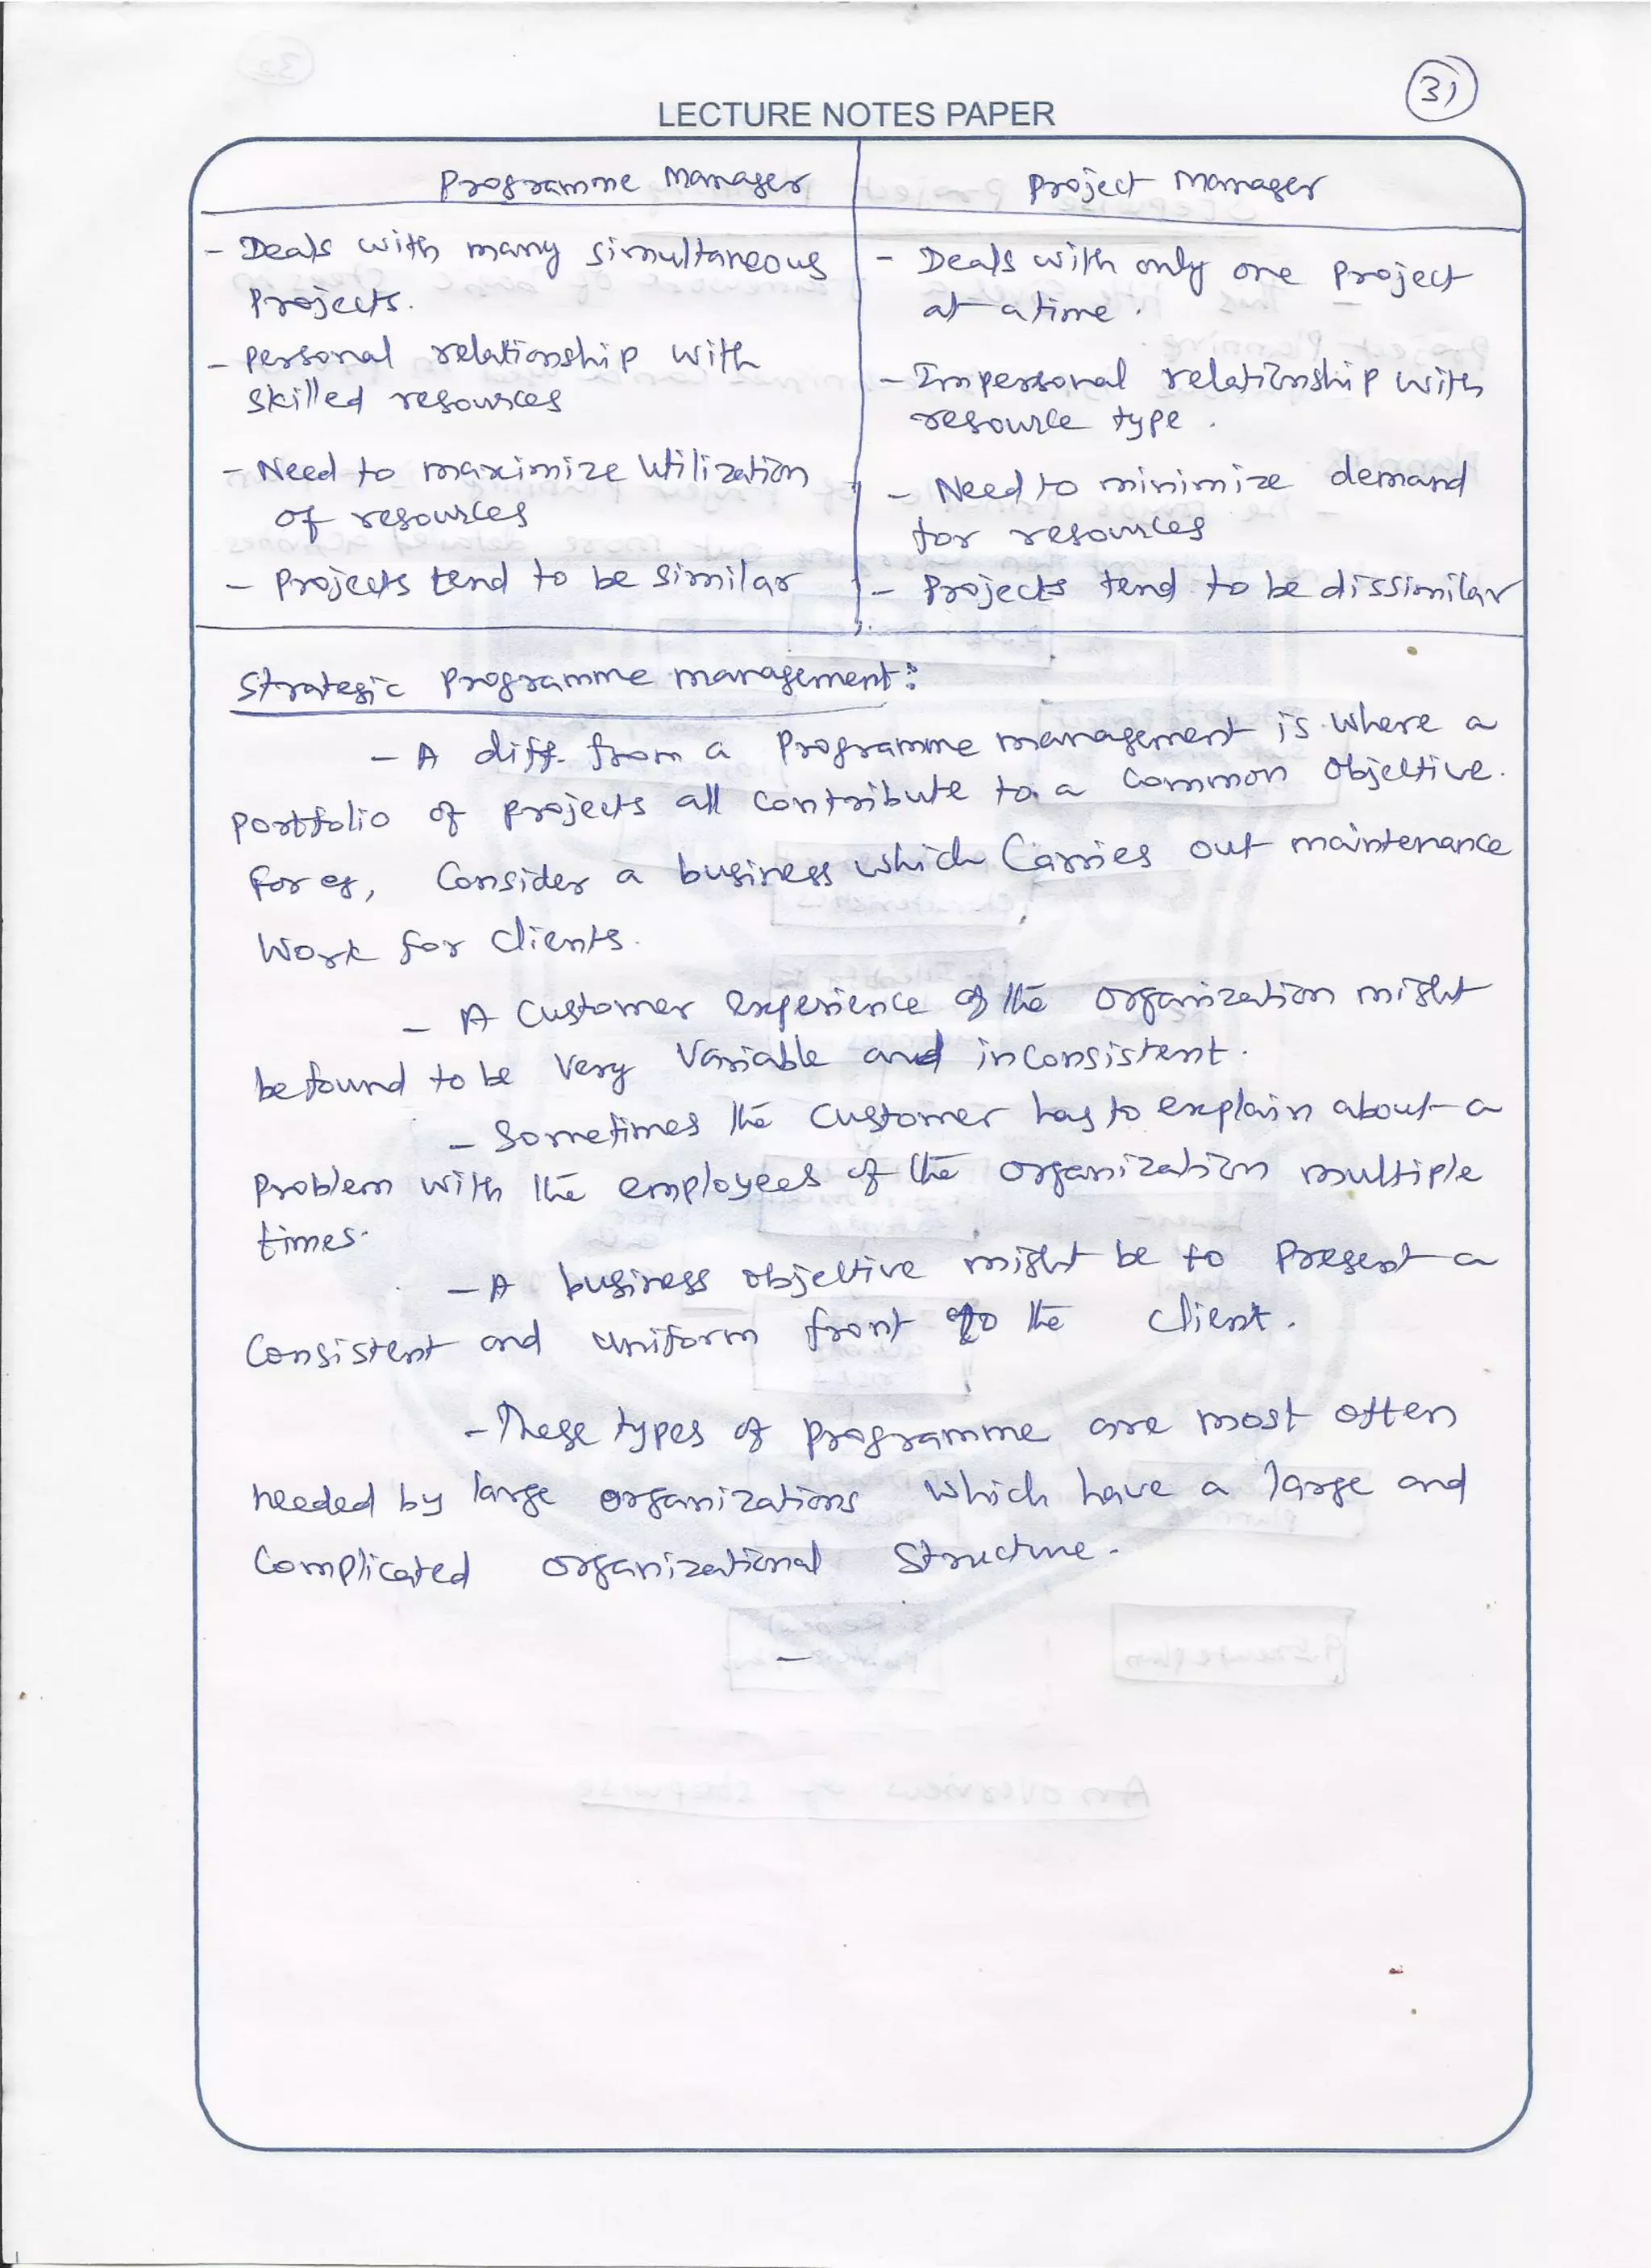 31
LECTURE NOTES PAPER
Programme Manager
- Deals with many simultaneous
Projects.
- Personal relationship with
skilled resources
- Need to maximize utilization
of resources
- Projects tend to be similar
Project Manager
- Deals with only one Project
at a time.
- Impersonal relationship with
resource type.
- Need to minimize demand
for resources
- Projects tend to be dissimilar
Strategic Programme management:
- A diff. from a Programme management is where a
Portfolio of projects all contribute to a common objective.
For eg, Consider a business which Carries out maintenance
Work for clients.
- A Customer experience of the organization might
be found to be Very Variable and inconsistent.
- Sometimes the customer has to explain about a
Problem with the employees of the organization multiple
times.
- A business objective might be to Present a
Consistent and uniform front to the client.
- These types of programme are most often
needed by large organizations which have a large and
Complicated organizational Structure.
An overview of stepwise